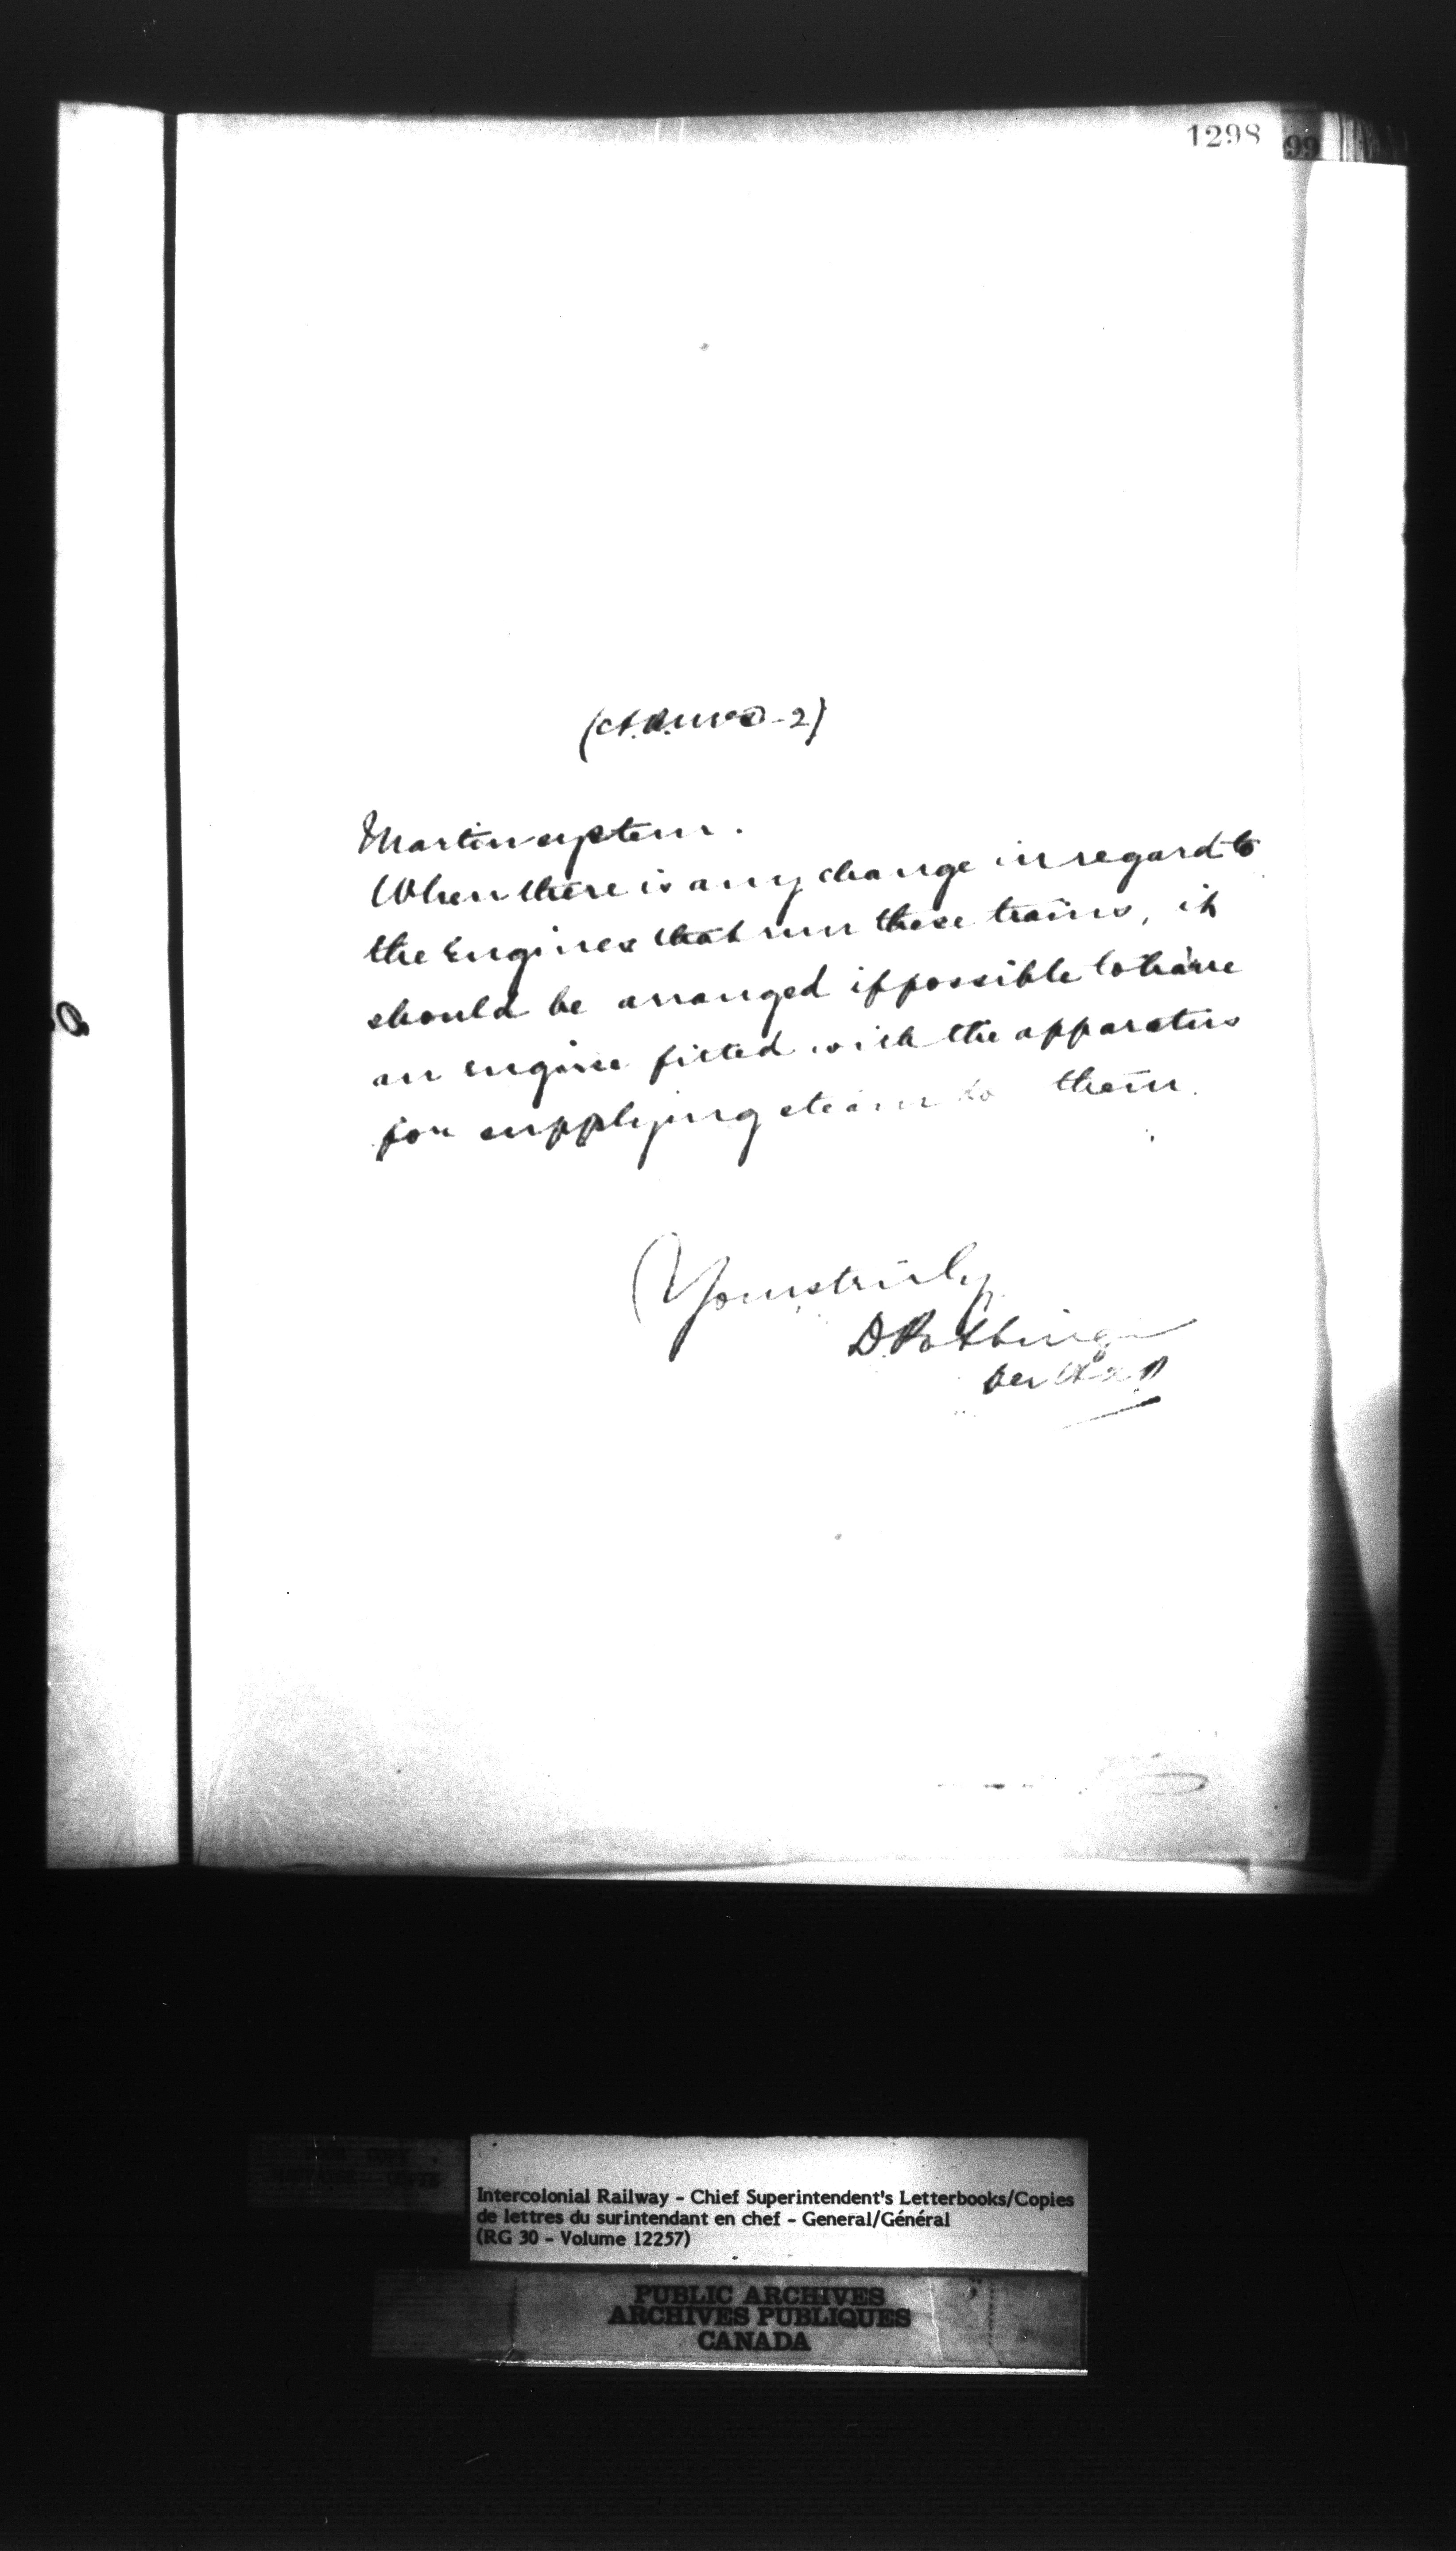 1298
99
Martin system.
When there is any change in regard to
the Engines that run these trains, it
should be arranged if possible to have
an engine fitted with the apparatus
for supplying steam to them.
Yours truly
D. Pottinger
per
COPY
COPIE
Intercolonial Railway - Chief Superintendent's Letterbooks/Copies
de lettres du surintendant en chef - General/Général
(RG 30 - Volume 12257)
PUBLIC ARCHIVES
ARCHIVES PUBLIQUES
CANADA